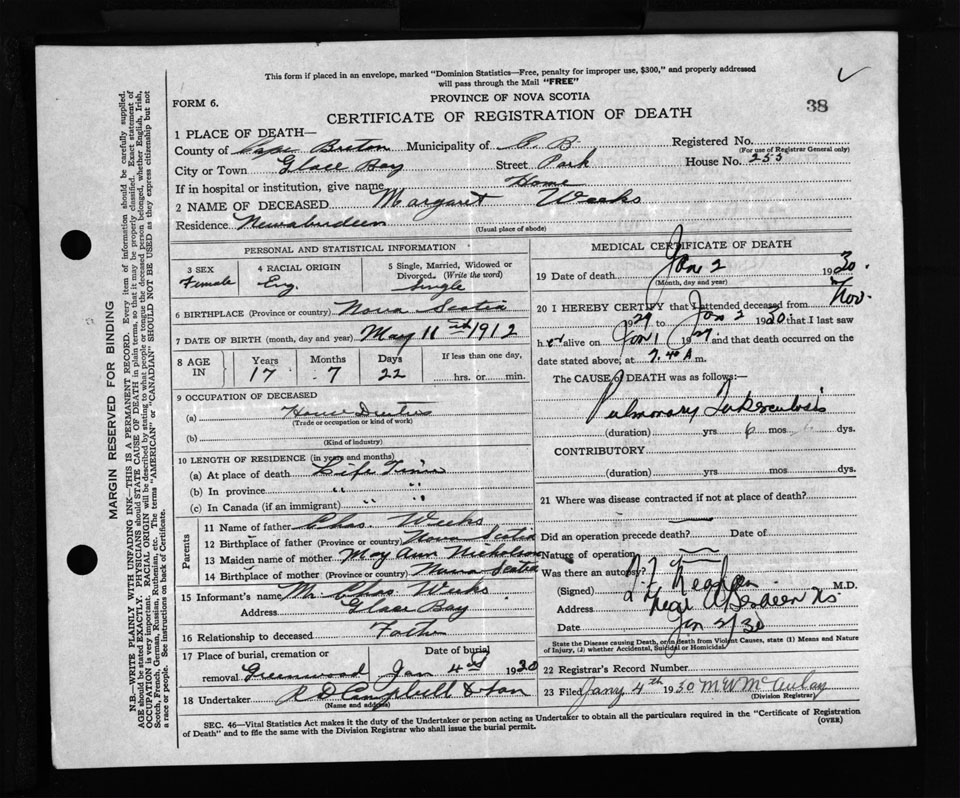 This form if placed in an envelope, marked "Dominion Statistics—Free, penalty for improper use, $300," and properly addressed
will pass through the Mail "FREE"
FORM 6.
PROVINCE OF NOVA SCOTIA
38
CERTIFICATE OF REGISTRATION OF DEATH
1 PLACE OF DEATH—
County of Cape Breton Municipality of C. B. Registered No.
(For use of Registrar General only)
City or Town Glace Bay Street Park House No. 255
If in hospital or institution, give name Home
2 NAME OF DECEASED Margaret Weeks
Residence Newaberdeen
(Usual place of abode)
PERSONAL AND STATISTICAL INFORMATION
3 SEX Female
4 RACIAL ORIGIN Eng.
5 Single, Married, Widowed or Divorced. (Write the word) Single
6 BIRTHPLACE (Province or country) Nova Scotia
7 DATE OF BIRTH (month, day and year) May 11 1912
8 AGE IN Years 17 Months 7 Days 22 If less than one day, hrs. or min.
9 OCCUPATION OF DECEASED
(a) House Duties
(Trade or occupation or kind of work)
(b)
(Kind of industry)
10 LENGTH OF RESIDENCE (in years and months)
(a) At place of death Life Time
(b) In province " "
(c) In Canada (if an immigrant) " "
Parents
11 Name of father Chas. Weeks
12 Birthplace of father (Province or country) Nova Scotia
13 Maiden name of mother May Ann Nicholson
14 Birthplace of mother (Province or country) Nova Scotia
15 Informant's name Mr Chas Weeks
Address Glace Bay
16 Relationship to deceased Father
17 Place of burial, cremation or removal Greenwood Date of burial Jan 4 1920
18 Undertaker R D Campbell & Son
(Name and address)
MEDICAL CERTIFICATE OF DEATH
19 Date of death Jan 2 1930
(Month, day and year)
20 I HEREBY CERTIFY that I attended deceased from Nov.
1929 to Jan 2 1930 that I last saw
h er alive on Jan 1 1927 and that death occurred on the
date stated above, at 7.40 A m.
The CAUSE OF DEATH was as follows:—
Pulmonary Tuberculosis
(duration) yrs 6 mos dys.
CONTRIBUTORY
(duration) yrs. mos. dys.
21 Where was disease contracted if not at place of death?
Did an operation precede death? Date of
Nature of operation
Was there an autopsy?
(Signed) M.D.
Address New Aberdeen NS
Date Jan 2/30
State the Disease causing Death, or in death from Violent Causes, state (1) Means and Nature of Injury, (2) whether Accidental, Suicidal or Homicidal.
22 Registrar's Record Number
23 Filed Jany 4th 1930 M W McAulay
(Division Registrar)
SEC. 46—Vital Statistics Act makes it the duty of the Undertaker or person acting as Undertaker to obtain all the particulars required in the "Certificate of Registration
of Death" and to file the same with the Division Registrar who shall issue the burial permit.
(OVER)
MARGIN RESERVED FOR BINDING
N.B.—WRITE PLAINLY WITH UNFADING INK—THIS IS A PERMANENT RECORD. Every item of information should be carefully supplied.
AGE should be stated EXACTLY. PHYSICIANS should STATE CAUSE OF DEATH in plain terms, so that it may be properly classified. Exact statement of
OCCUPATION is very important. RACIAL ORIGIN will be described by stating to what people or tongue the deceased person belonged, whether English, Irish,
Scotch, French, German, Russian, Ruthenian, etc. The terms "AMERICAN" or "CANADIAN" SHOULD NOT BE USED as they express citizenship but not
a race or people. See instructions on back of Certificate.